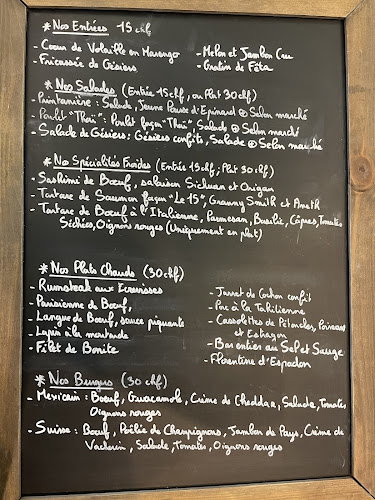 * Nos Entrées 15 chf
- Coeur de Volaille en Marengo
- Fricassée de Gésiers
- Melon et Jambon Cru
- Gratin de Féta
* Nos Salades (Entrée 15 chf, ou Plat 30 chf)
- Printanière : Salade, Jeune Pousse d'Epinard ⊕ Selon marché
- Poulet "Thaï" : Poulet façon "Thaï", Salade ⊕ Selon marché
- Salade de Gésiers : Gésiers confits, Salade ⊕ Selon marché
* Nos Spécialités Froides (Entrée 15 chf ; Plat 30 chf)
- Sashimi de Boeuf, salaison Sichuan et Origan
- Tartare de Saumon façon "Le 15", Granny Smith et Aneth
- Tartare de Boeuf à l'Italienne, Parmesan, Basilic, Câpres, Tomates
Séchées, Oignons rouges (Uniquement en plat)
* Nos Plats Chauds (30 chf)
- Rumsteak aux Ecrevisses
- Parisienne de Boeuf,
- Langue de Boeuf, sauce piquante
- Lapin à la moutarde
- Filet de Bonite
- Jarret de Cochon confit
- Porc à la Tahitienne
- Cassolettes de Pétoncles, Poireaux
et Estragon
- Bar entier au Sel et Sauge
- Florentine d'Espadon
* Nos Burgers (30 chf)
- Mexicain : Boeuf, Guacamole, Crème de Cheddar, Salade, Tomates
Oignons rouges
- Suisse : Boeuf, Poêlée de Champignons, Jambon de Pays, Crème de
Vacherin, Salade, Tomates, Oignons rouges